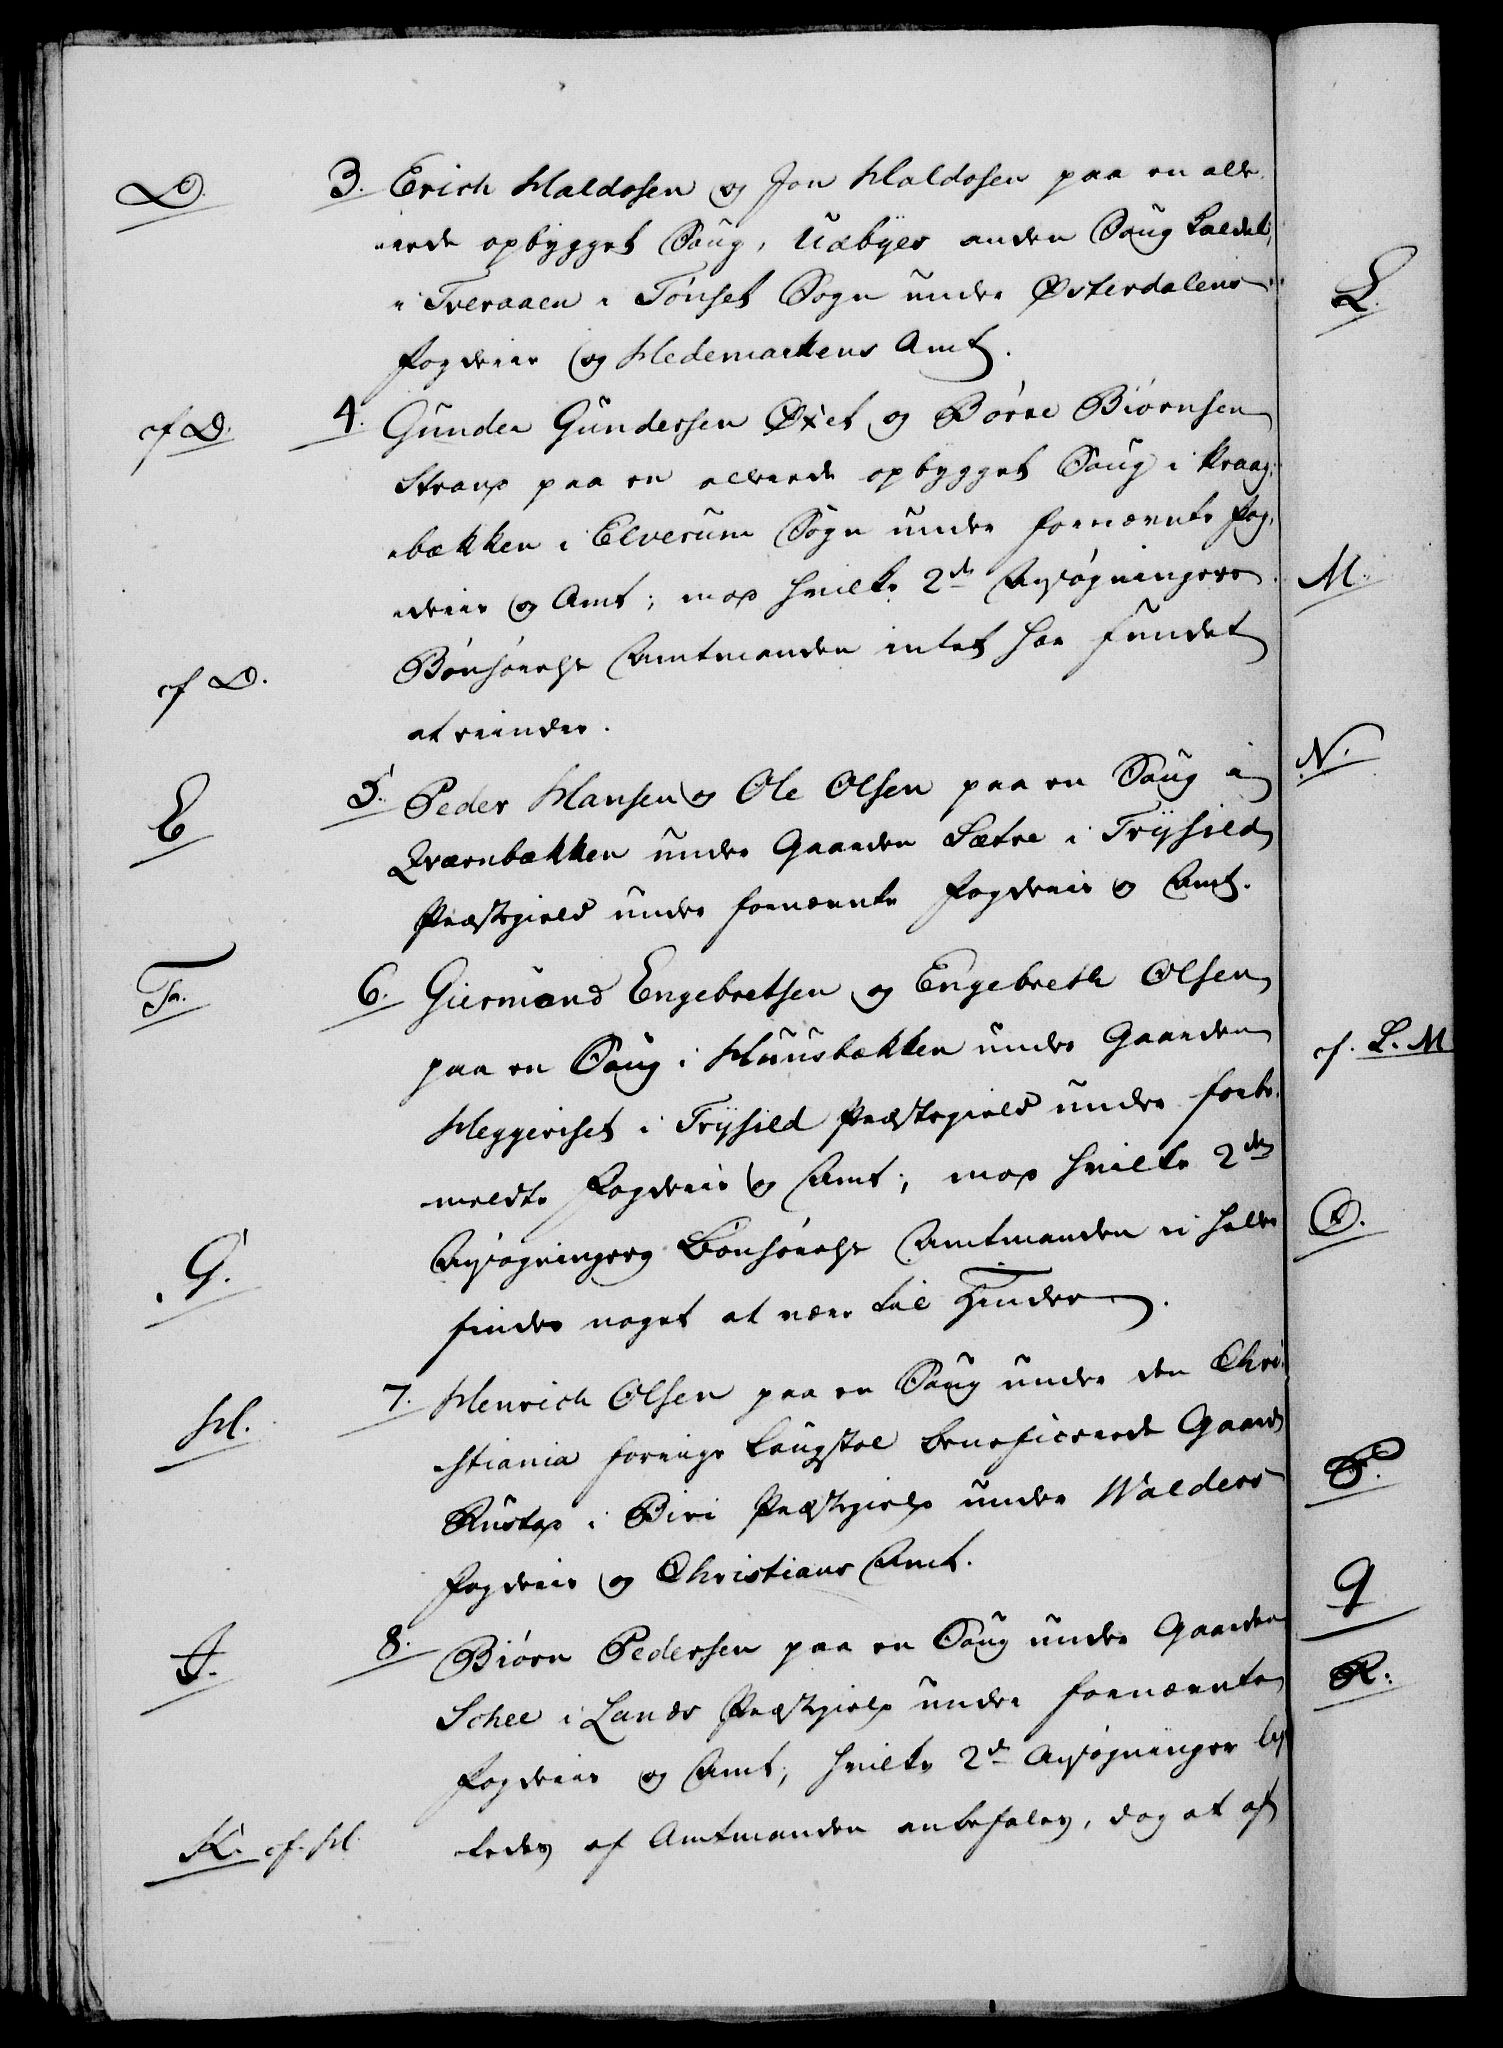 D.
3. Erich Haldosen og Jon Haldosen paa en alle-
rede opbygget Saug, Udbyes anden Saug kaldet,
i Tveraaen i Tønset Sogn under Østerdalens
Fogderie og Hedemarkens Amt.
cf D.
4. Gunder Gundersen Øxet og Børre Biørnsen
Strand paa en allerede opbygget Saug i Kraag-
bækken i Elverum Sogn under fornævnte Fog-
derie og Amt; mod hvilke 2de Ansøgningers
cf D.
Bønhørelse Amtmanden intet har fundet
at erindre.
E
5. Peder Hansen og Ole Olsen paa en Saug i
Qværnbækken under Gaarden Sætre i Trysild
Præstegield under fornævnte Fogderie og Amt.
F.
6. Giermund Engebretsen og Engebreth Olsen
paa en Saug i Huusbækken under Gaarden
Heggeriset i Trysild Præstegield under forbe-
meldte Fogderie og Amt; mod hvilke 2de
G.
Ansøgningers Bønhørelse Amtmanden ei heller
finder noget at være til Hinder.
H.
7. Henrich Olsen paa en Saug under den Chri-
stiania forrige Laugstoel beneficerede Gaard
Rustad i Biri Præstegield under Walders
Fogderie og Christians Amt.
J.
8. Biørn Pedersen paa en Saug under Gaarden
Schee i Lands Præstegield under fornævnte
Fogderie og Amt; hvilke 2de Ansøgninger
K. cf. H.
ledes af Amtmanden anbefales, dog at af
L.
M.
N.
cf. L. M
O.
P.
Q
R.